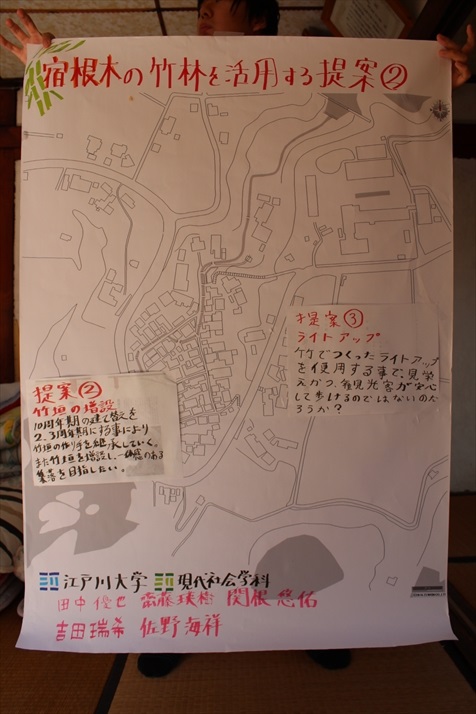 宿根木の竹林を活用する提案②
提案③
ライトアップ
竹でつくったライトアップ
を使用する事で、見栄
えかつ、観光客が安心
して歩けるのではないのだ
ろうか？
提案②
竹垣の増設
10周年期の建て替えを
2、3周年期にする事により
竹垣の作り手を継承していく。
また竹垣を増設し、一体感のある
集落を目指したい。
江戸川大学 現代社会学科
田中 優也 齋藤 瑛樹 関根 悠佑
吉田 瑞希 佐野 海祥